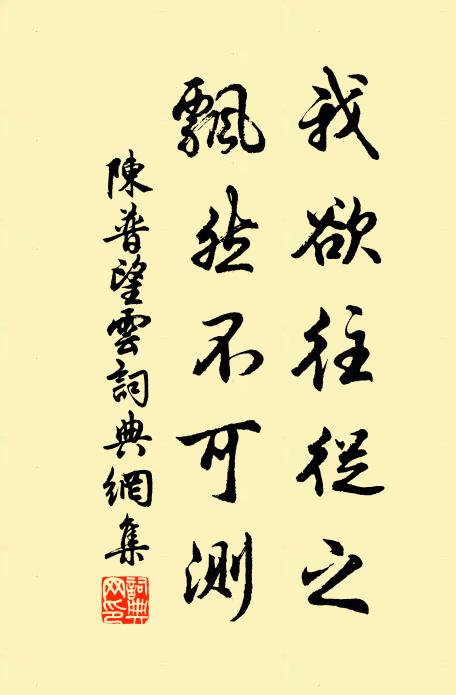 我欲往從之
飄然不可測
陳普望雲詞典網集
詞典网印